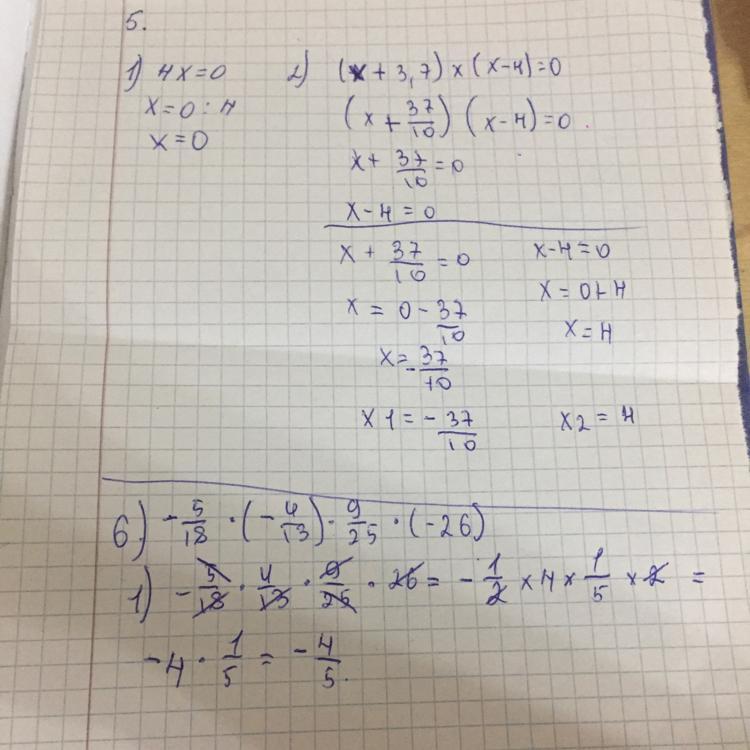 5.
1) 4x=0
x=0:4
x=0
2) (x+3,7)×(x-4)=0
(x+37/10)(x-4)=0.
x+37/10=0
x-4=0
x+37/10=0
x=0-37/10
x=-37/10
x1=-37/10
x-4=0
x=0+4
x=4
x2=4
6) -5/18·(-4/13)·9/25·(-26)
1) -5/18·4/13·9/25·26=-1/2×4×1/5×2=
-4·1/5=-4/5.